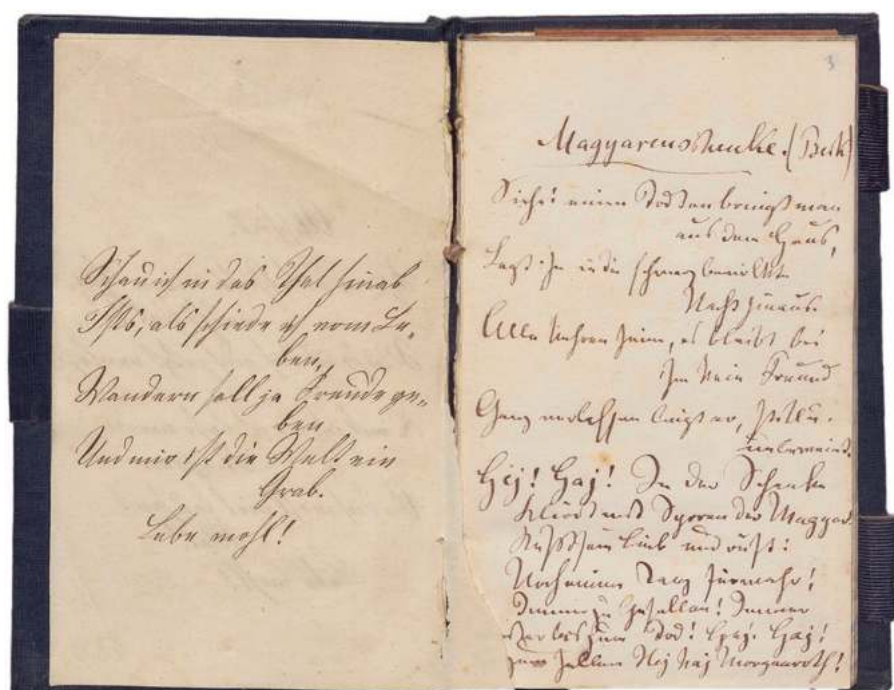 Schau ich in das Thal hinab
Ists, als schiede ich vom Le-
ben,
Wandern soll ja Freude ge-
ben
Und mir ist die Welt ein
Grab.
Lebe wohl!
3
Magyarenschenke. (Beck)
Siehe! einen Todten bringt man
aus dem Haus,
Legt ihn in die schwarz bewölkte
Nacht hinaus.
Alle kehren heim, es bleibt bei
ihm kein Freund
Ganz verlassen liegt er,
unbeweint.
Hej! Haj! In der Schenke
Klirrt mit Sporen der Magyar
Küßt sein Lieb und ruft:
Noch einen Tanz
Immerzu Gesellen! Immer
bis zum Tod! Hej! Haj!
Hej Haj Morgenroth!